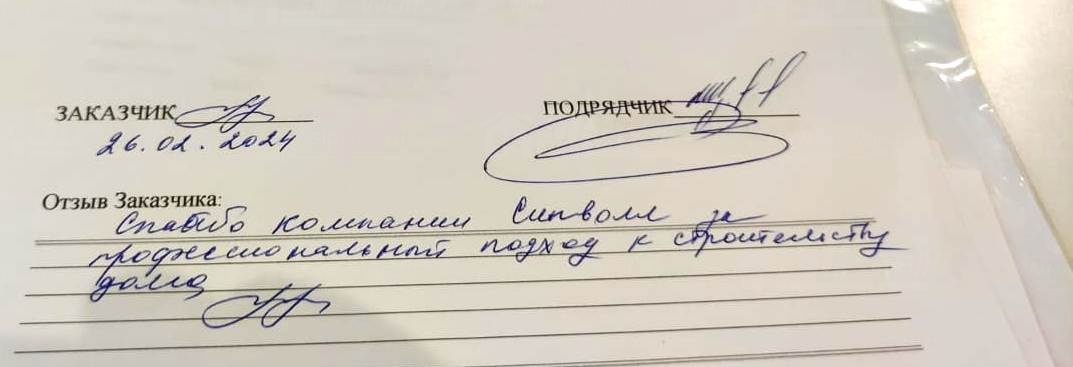 ЗАКАЗЧИК ПОДРЯДЧИК
26.02.2024
Отзыв Заказчика:
Спасибо компании Сипволл за
профессиональный подход к строительству
дома